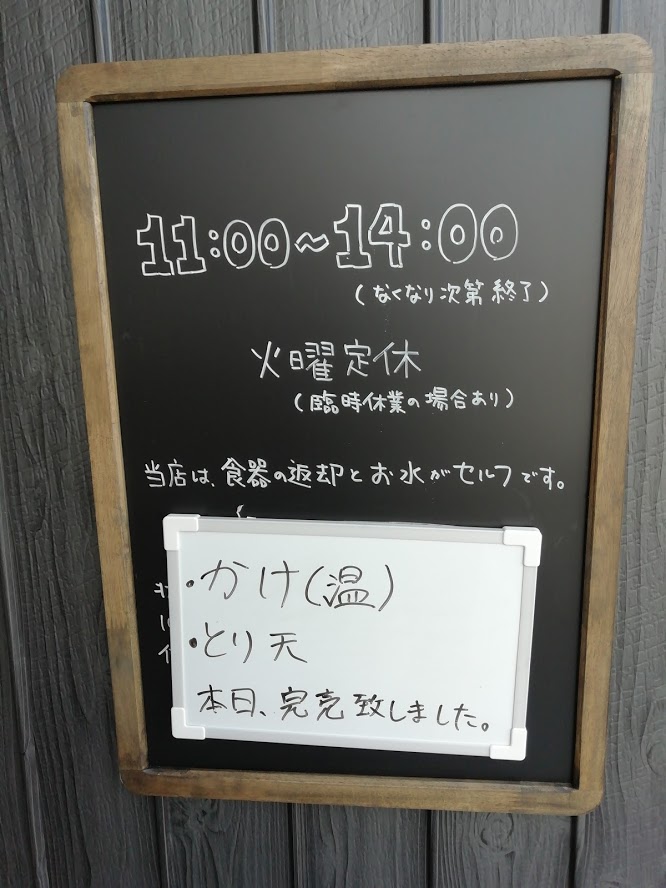 11:00～14:00
(なくなり次第終了)
火曜定休
(臨時休業の場合あり)
当店は、食器の返却とお水がセルフです。
・かけ(温)
・とり天
本日、完売致しました。